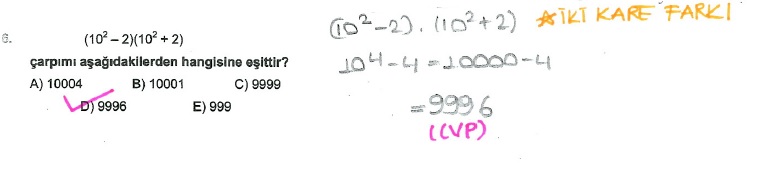 6. (10² – 2)(10² + 2)
çarpımı aşağıdakilerden hangisine eşittir?
A) 10004 B) 10001 C) 9999
D) 9996 E) 999
(10²-2).(10²+2) ☆İKİ KARE FARKI
10⁴-4=10000-4
=9996
((VP)